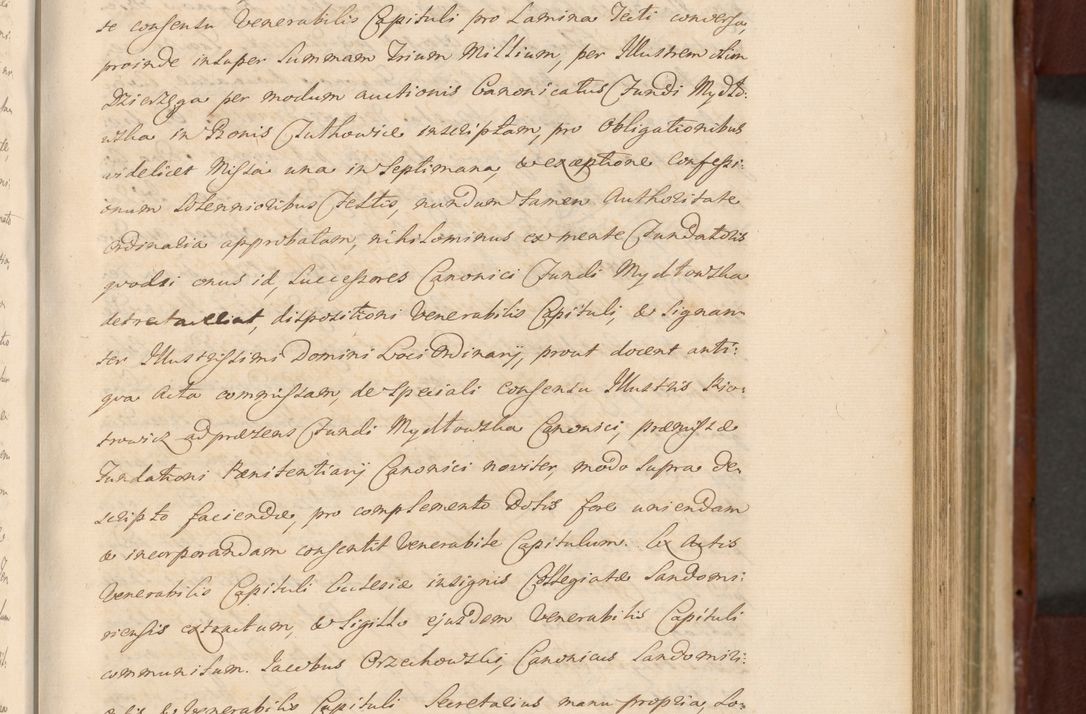 te consensu Venerabilis Capituli pro Lamina Tecti conversa,
proinde insuper Summam Trium Millium, per Illustrem olim
Dzierzęga per modum auctionis Canonicatus Fundi Mydło-
wska in Bonis Tuthowice inscriptam, pro Obligationibus
videlicet Missa una in Septimana, & exceptione Confessi:
onum Solennioribus Festis, nundum tamen Authoritate
Ordinaria approbatam, nihilominus ex mente Fundatoris
quodsi onus id, Successores Canonici Fundi Mydłowska
detractarent, dispositioni Venerabilis Capituli, & Signan-
ter Illustrissimi Domini Loci Ordinarij, prout docent anti:
qua Acta commissam, de Speciali consensu Illustris Pio-
trowicz ad præsens Fundi Mydłowska Canonici, præmissæ
Fundationi Pænitentiarij Canonici noviter, modo supra de-
scripto faciendæ, pro complemento Dotis fore uniendam
& incorporandam consentit Venerabile Capitulum. Ex Actis
Venerabilis Capituli Ecclesiæ insignis Collegiatæ Sandomi:
riensis extractum, & Sigillo ejusdem Venerabilis Capituli
communitum. Jacobus Orzechowski, Canonicus Sandomiri:
Venerabilis Capituli Secretarius manu propria, Lo-